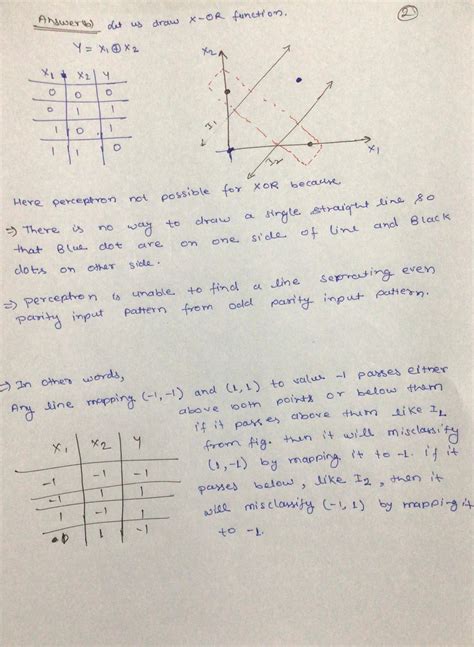 Answer(b) Let us draw X-OR function. (2)
Y = X1 ⊕ X2
X1 X2 Y
0 0 0
0 1 1
1 0 1
1 1 0
X2
I1
I2
X1
Here perceptron not possible for XOR because
⇒ There is no way to draw a single straight line so
that Blue dot are on one side of line and Black
dots on other side.
⇒ perceptron is unable to find a line seprating even
parity input pattern from odd parity input pattern.
⇒ In other words,
Any line mapping (-1,-1) and (1,1) to value -1 passes either
above both points or below them
if it passes above them like I1
from fig. then it will misclassify
(1,-1) by mapping it to -1. if it
passes below, like I2, then it
will misclassify (-1,1) by mapping it
to -1.
X1 X2 Y
-1 -1 -1
-1 1 1
1 -1 1
1 -1